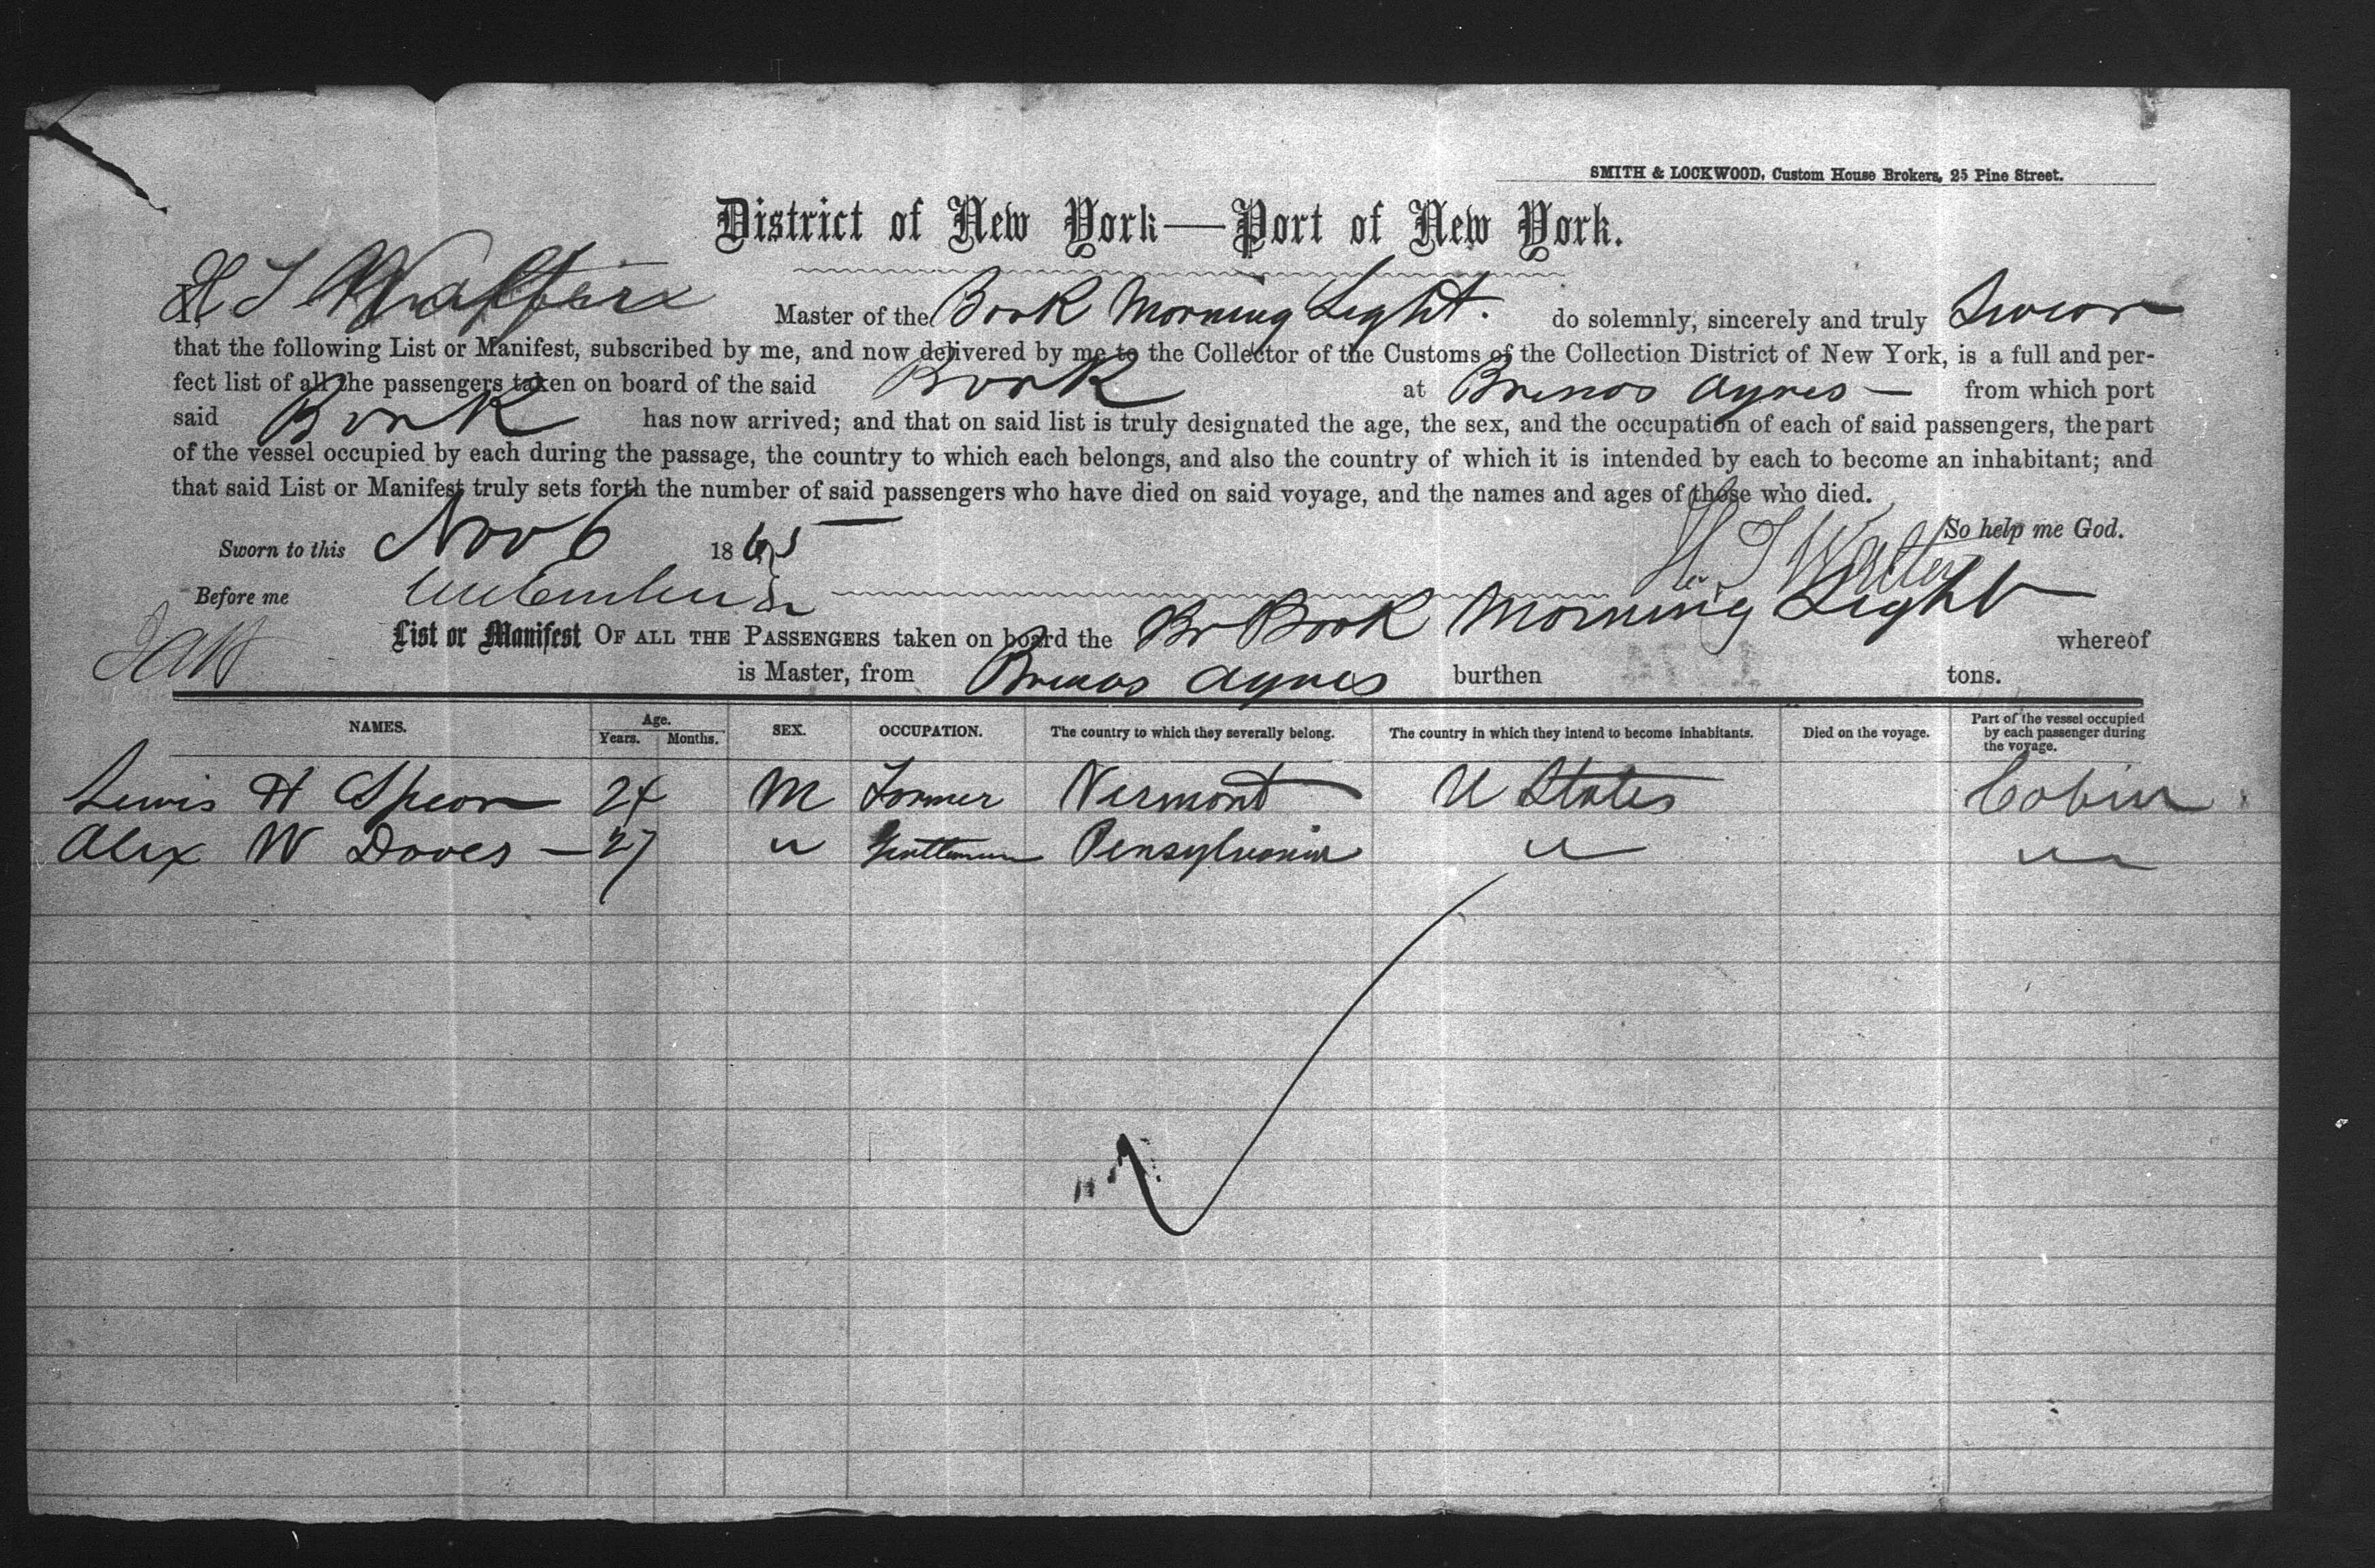 SMITH & LOCKWOOD, Custom House Brokers, 25 Pine Street.
District of New York—Port of New York.
I, H J Walters Master of the Bark Morning Light. do solemnly, sincerely and truly Swear
that the following List or Manifest, subscribed by me, and now delivered by me to the Collector of the Customs of the Collection District of New York, is a full and per-
fect list of all the passengers taken on board of the said Bark at Buenos Ayres — from which port
said Bark has now arrived; and that on said list is truly designated the age, the sex, and the occupation of each of said passengers, the part
of the vessel occupied by each during the passage, the country to which each belongs, and also the country of which it is intended by each to become an inhabitant; and
that said List or Manifest truly sets forth the number of said passengers who have died on said voyage, and the names and ages of those who died.
So help me God.
Sworn to this Nov 6 1865
H. J Walter
Before me
List or Manifest OF ALL THE PASSENGERS taken on board the Br Bark Morning Light whereof
is Master, from Buenos Ayres burthen tons.
NAMES. Age. Years. Months. SEX. OCCUPATION. The country to which they severally belong. The country in which they intend to become inhabitants. Died on the voyage. Part of the vessel occupied by each passenger during the voyage.
Lewis H Spear 24 M Farmer Vermont U States Cabin
Alex W Daves — 27 " Gentleman Pensylvania " "